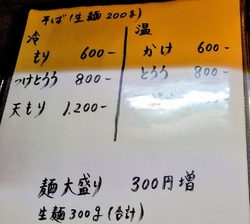 そば(生麺200g)
冷
もり 600-
つけとろろ 800-
天もり 1,200-
温
かけ 600-
とろろ 800-
麺大盛り 300円増
生麺300g(合計)